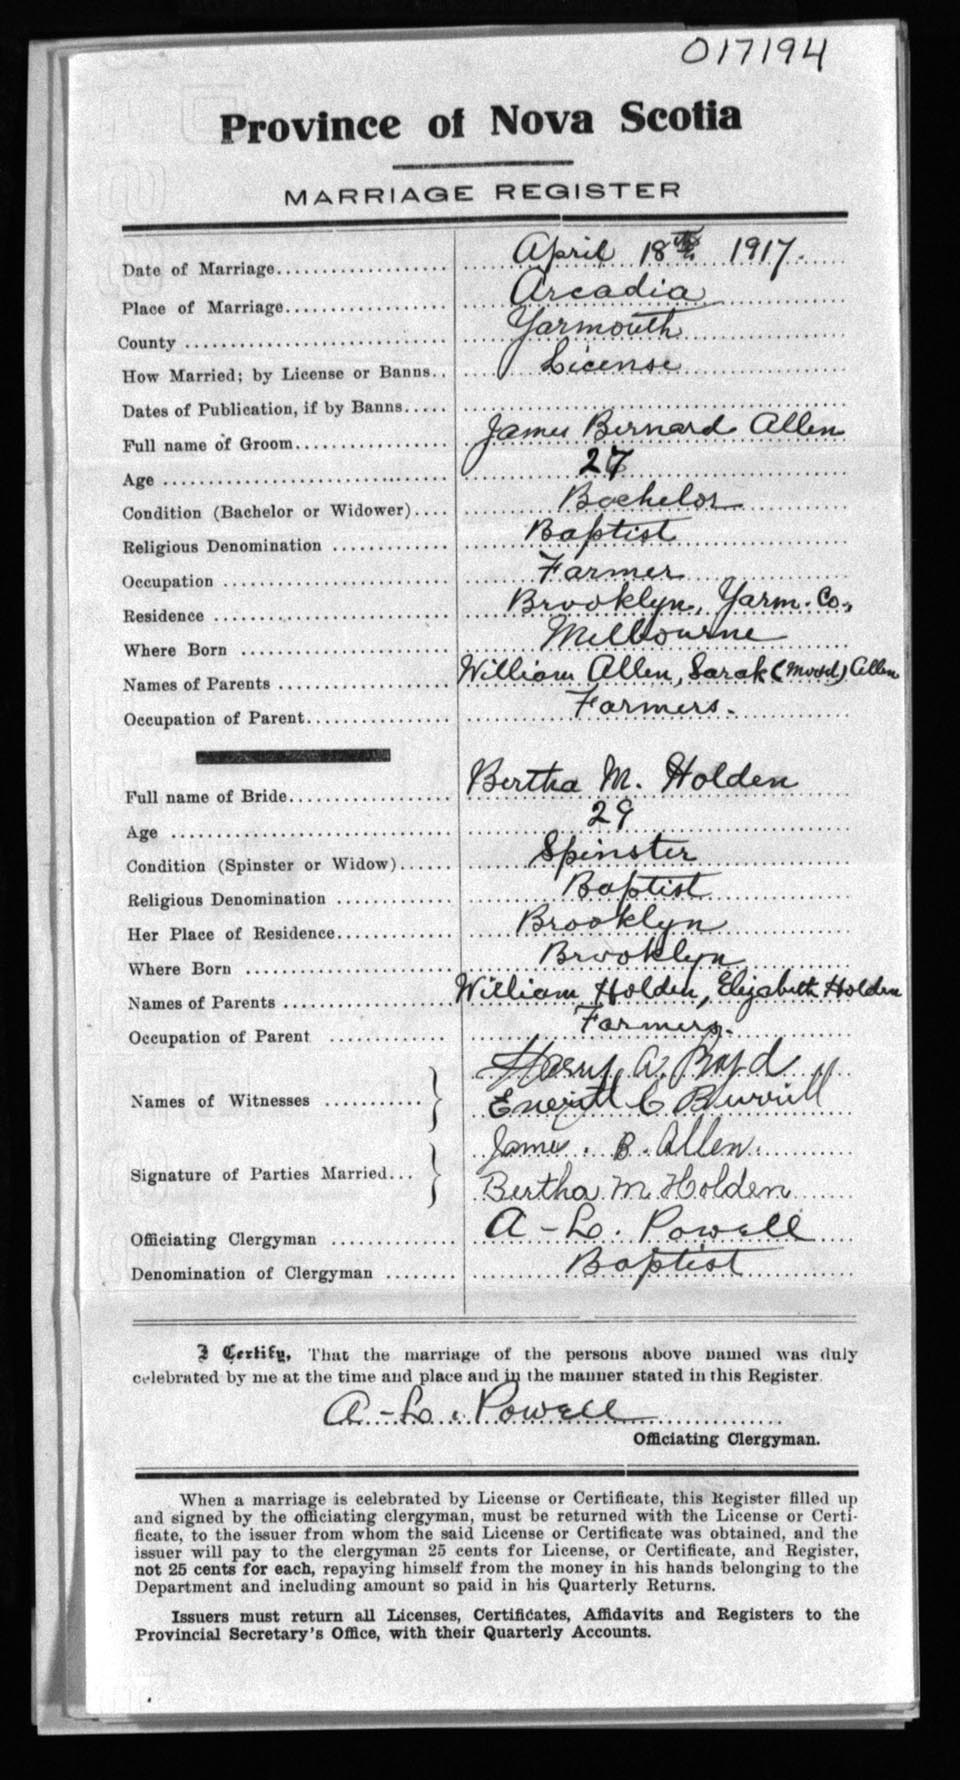 017194
Province of Nova Scotia
MARRIAGE REGISTER
Date of Marriage................... April 18th 1917.
Place of Marriage................... Arcadia
County ............................. Yarmouth
How Married; by License or Banns.. License
Dates of Publication, if by Banns.....
Full name of Groom.................. James Bernard Allen
Age ................................ 27
Condition (Bachelor or Widower).... Bachelor
Religious Denomination ............. Baptist
Occupation ......................... Farmer
Residence .......................... Brooklyn, Yarm. Co.,
Where Born ......................... Melbourne
Names of Parents ................... William Allen, Sarah (Mood) Allen
Occupation of Parent................ Farmers.
Full name of Bride.................. Bertha M. Holden
Age ................................ 29
Condition (Spinster or Widow)...... Spinster
Religious Denomination ............. Baptist
Her Place of Residence.............. Brooklyn
Where Born ......................... Brooklyn
Names of Parents ................... William Holden, Elizabeth Holden
Occupation of Parent ............... Farmers.
Names of Witnesses ........... } Harry A. Boyd
Everett C Burrill
Signature of Parties Married... } James. B. Allen.
Bertha M. Holden
Officiating Clergyman .............. A-L. Powell
Denomination of Clergyman ........ Baptist
I Certify, That the marriage of the persons above named was duly
celebrated by me at the time and place and in the manner stated in this Register.
A-L. Powell
Officiating Clergyman.
When a marriage is celebrated by License or Certificate, this Register filled up
and signed by the officiating clergyman, must be returned with the License or Certi-
ficate, to the issuer from whom the said License or Certificate was obtained, and the
issuer will pay to the clergyman 25 cents for License, or Certificate, and Register,
not 25 cents for each, repaying himself from the money in his hands belonging to the
Department and including amount so paid in his Quarterly Returns.
Issuers must return all Licenses, Certificates, Affidavits and Registers to the
Provincial Secretary's Office, with their Quarterly Accounts.